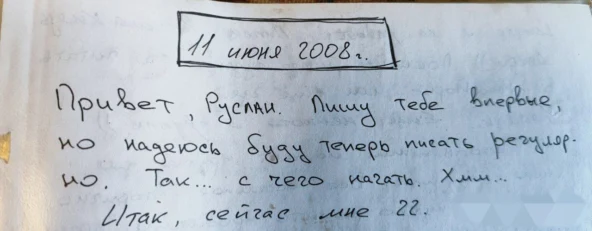 11 июня 2008г.
Привет, Руслан. Пишу тебе впервые,
но надеюсь буду теперь писать регуляр-
но. Так... с чего начать. Хмм...
Итак, сейчас мне 22.